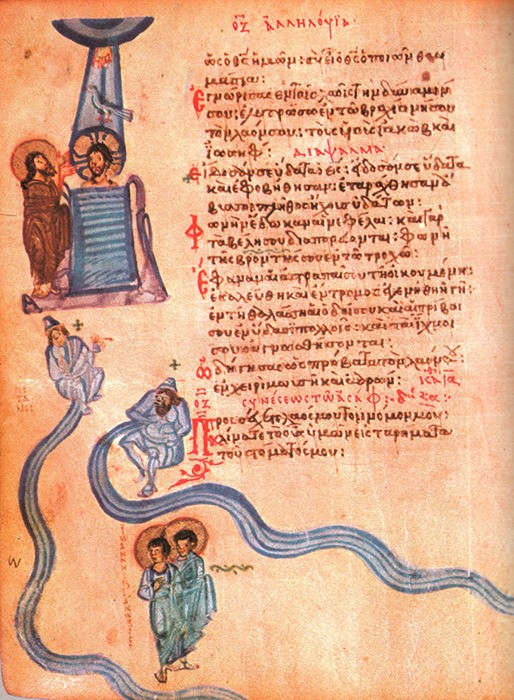 ΟΖ ΑΛΛΗΛΟΥΪΑ
ὡς ὁ θς ἡμῶν : σὺ εἶ ὁ θς ὁ ποιῶν θαυ
μάσια :
Ἐγνώρισας ἐν τοῖς λαοῖς τὴν δύναμίν
σου : ἐλυτρώσω ἐν τῷ βραχίονί σου
τὸν λαόν σου : τοὺς υἱοὺς ἰακὼβ καὶ
ἰωσήφ : ΔΙΑΨΑΛΜΑ
Εἴδοσάν σε ὕδατα ὁ θς : εἴδοσάν σε ὕδατα
καὶ ἐφοβήθησαν : ἐταράχθησαν ἄ
βυσσοι πλῆθος ἤχους ὑδάτων :
Φωνὴν ἔδωκαν αἱ νεφέλαι : καὶ γὰρ
τὰ βέλη σου διαπορεύονται : φωνὴ
τῆς βροντῆς σου ἐν τῷ τροχῷ :
Ἔφαναν αἱ ἀστραπαί σου τῇ οἰκουμένῃ :
ἐσαλεύθη καὶ ἔντρομος ἐγενήθη ἡ γῆ :
ἐν τῇ θαλάσσῃ αἱ ὁδοί σου καὶ αἱ τρίβοι
σου ἐν ὕδασι πολλοῖς : καὶ τὰ ἴχνη
σου οὐ γνωσθήσονται :
Ὡδήγησας ὡς πρόβατα τὸν λαόν σου
ἐν χειρὶ μωυσῆ καὶ ἀαρών :
ΟΖ ΣΥΝΕΣΕΩΣ ΤΩ ΑΣΑΦ :
Προσέχετε λαός μου τὸν νόμον μου :
κλίνατε τὸ οὖς ὑμῶν εἰς τὰ ῥήματα
τοῦ στόματός μου :